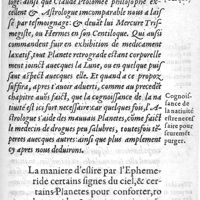 loge: ainsi que Claude Ptolomee philosophe ex-
cellent & Astrologue incomparable nous a lais-
sé par tesmoignage: & deuāt lui Mercure Tris-
megiste, ou Hermes en son Centiloque. Qui aussi
commandent fur en exhibition de medicament
laxatif, tout Planete retrograde estant corporelle-
ment ioinct auecques la Lune, ou en quelque par
saut aspect auecques elle. Et quant a ce propoz
suffira, apres t'auoir aduerti, comment en ce
chapitre auons faict, que la cognoissance de la na
tiuité est icy fort necessaire: car quelques fois, l'A-
strologue s'aide des mauuais Planetes, cōme faict
le medecin de drogues peu salubres, toutesfois tem-
perees auecques autres: ainsi que plus amplement
& apres nous deduirons.
Cognois-
sance de
la natiuité
est necessaire
faire pour
seurement
purger.
La maniere d'eslire par l'Epheme-
ride certains signes du ciel, & cer-
tains Planetes pour conforter, ro